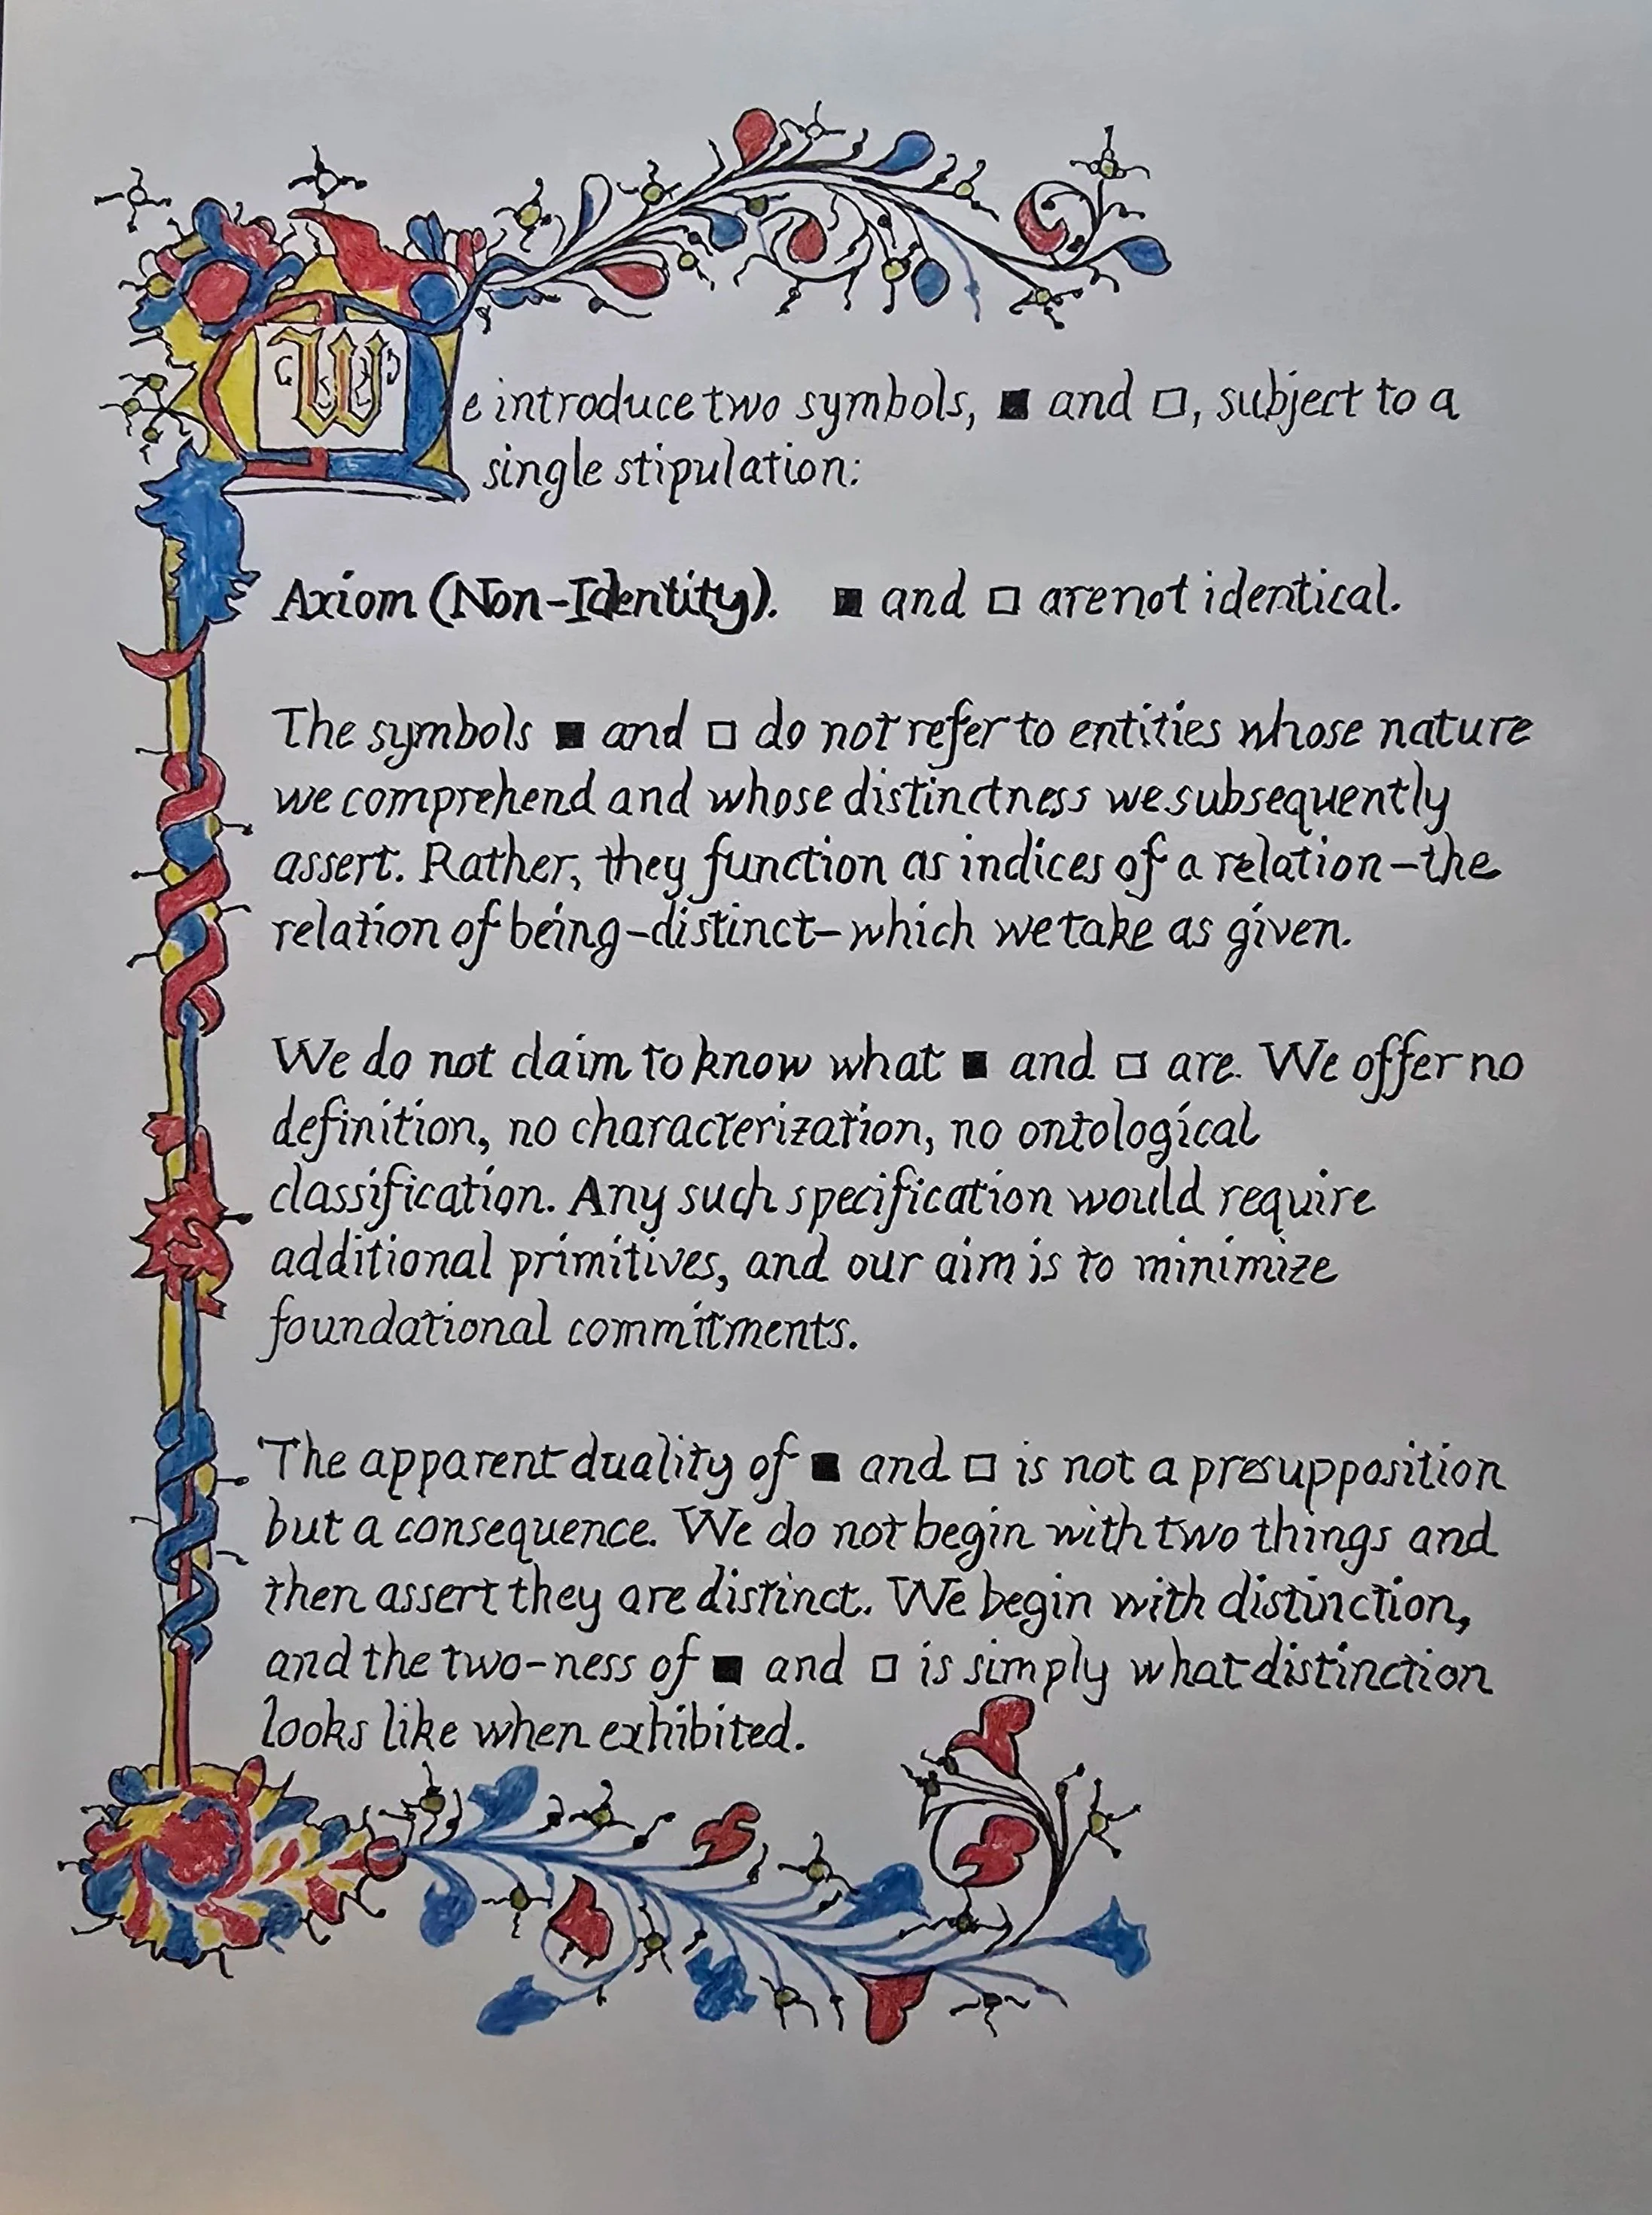 We introduce two symbols, ■ and □, subject to a
single stipulation:
Axiom (Non-Identity). ■ and □ are not identical.
The symbols ■ and □ do not refer to entities whose nature
we comprehend and whose distinctness we subsequently
assert. Rather, they function as indices of a relation—the
relation of being-distinct—which we take as given.
We do not claim to know what ■ and □ are. We offer no
definition, no characterization, no ontological
classification. Any such specification would require
additional primitives, and our aim is to minimize
foundational commitments.
The apparent duality of ■ and □ is not a presupposition
but a consequence. We do not begin with two things and
then assert they are distinct. We begin with distinction,
and the two-ness of ■ and □ is simply what distinction
looks like when exhibited.